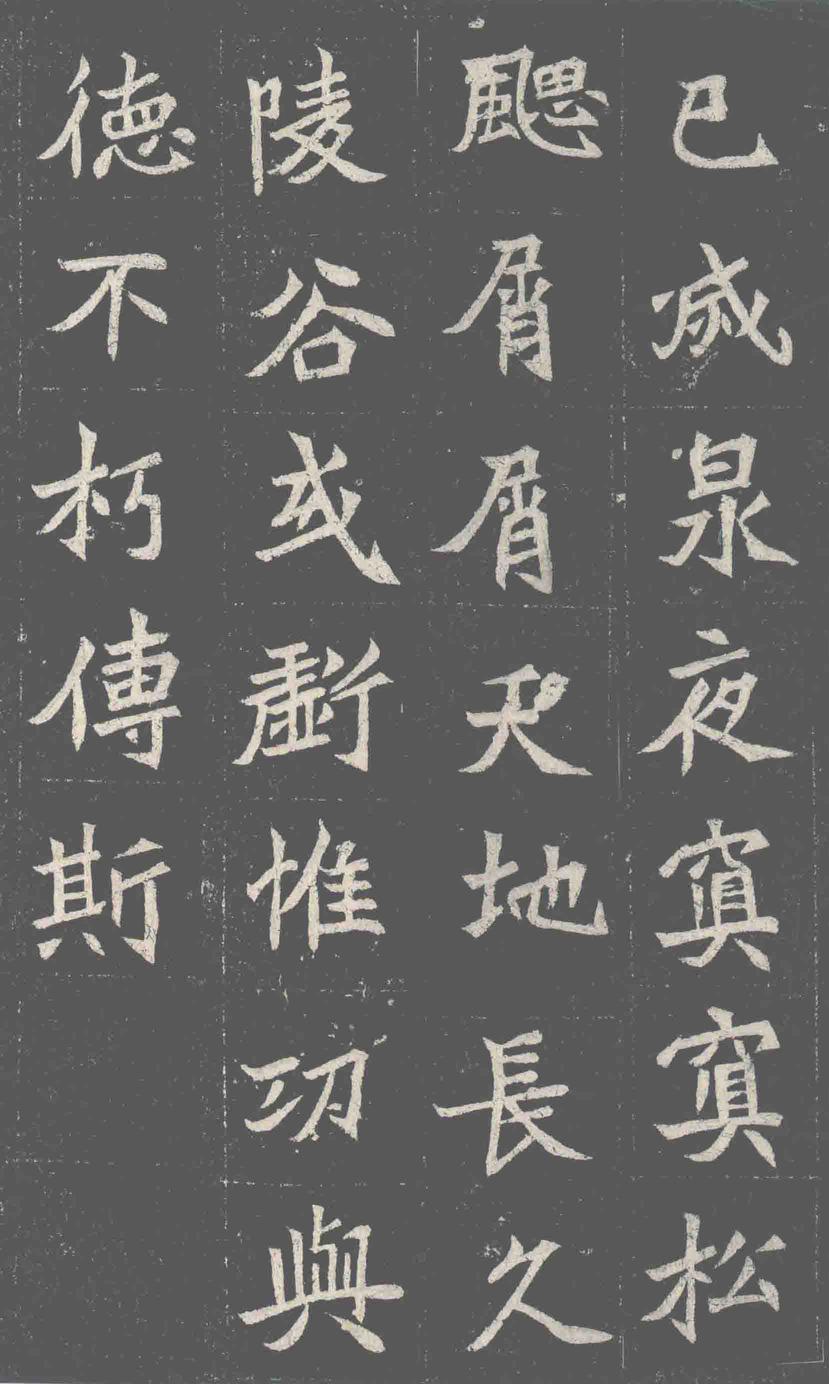 已滅泉夜冥冥松
颸屑屑天地長久
陵谷或虧惟功與
德不朽傳斯